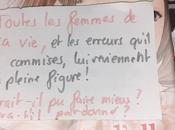 Toutes les femmes de
sa vie, et les erreurs qu'il
commises, lui reviennent
pleine figure!
rait-il pu faire mieux?
pardonné?